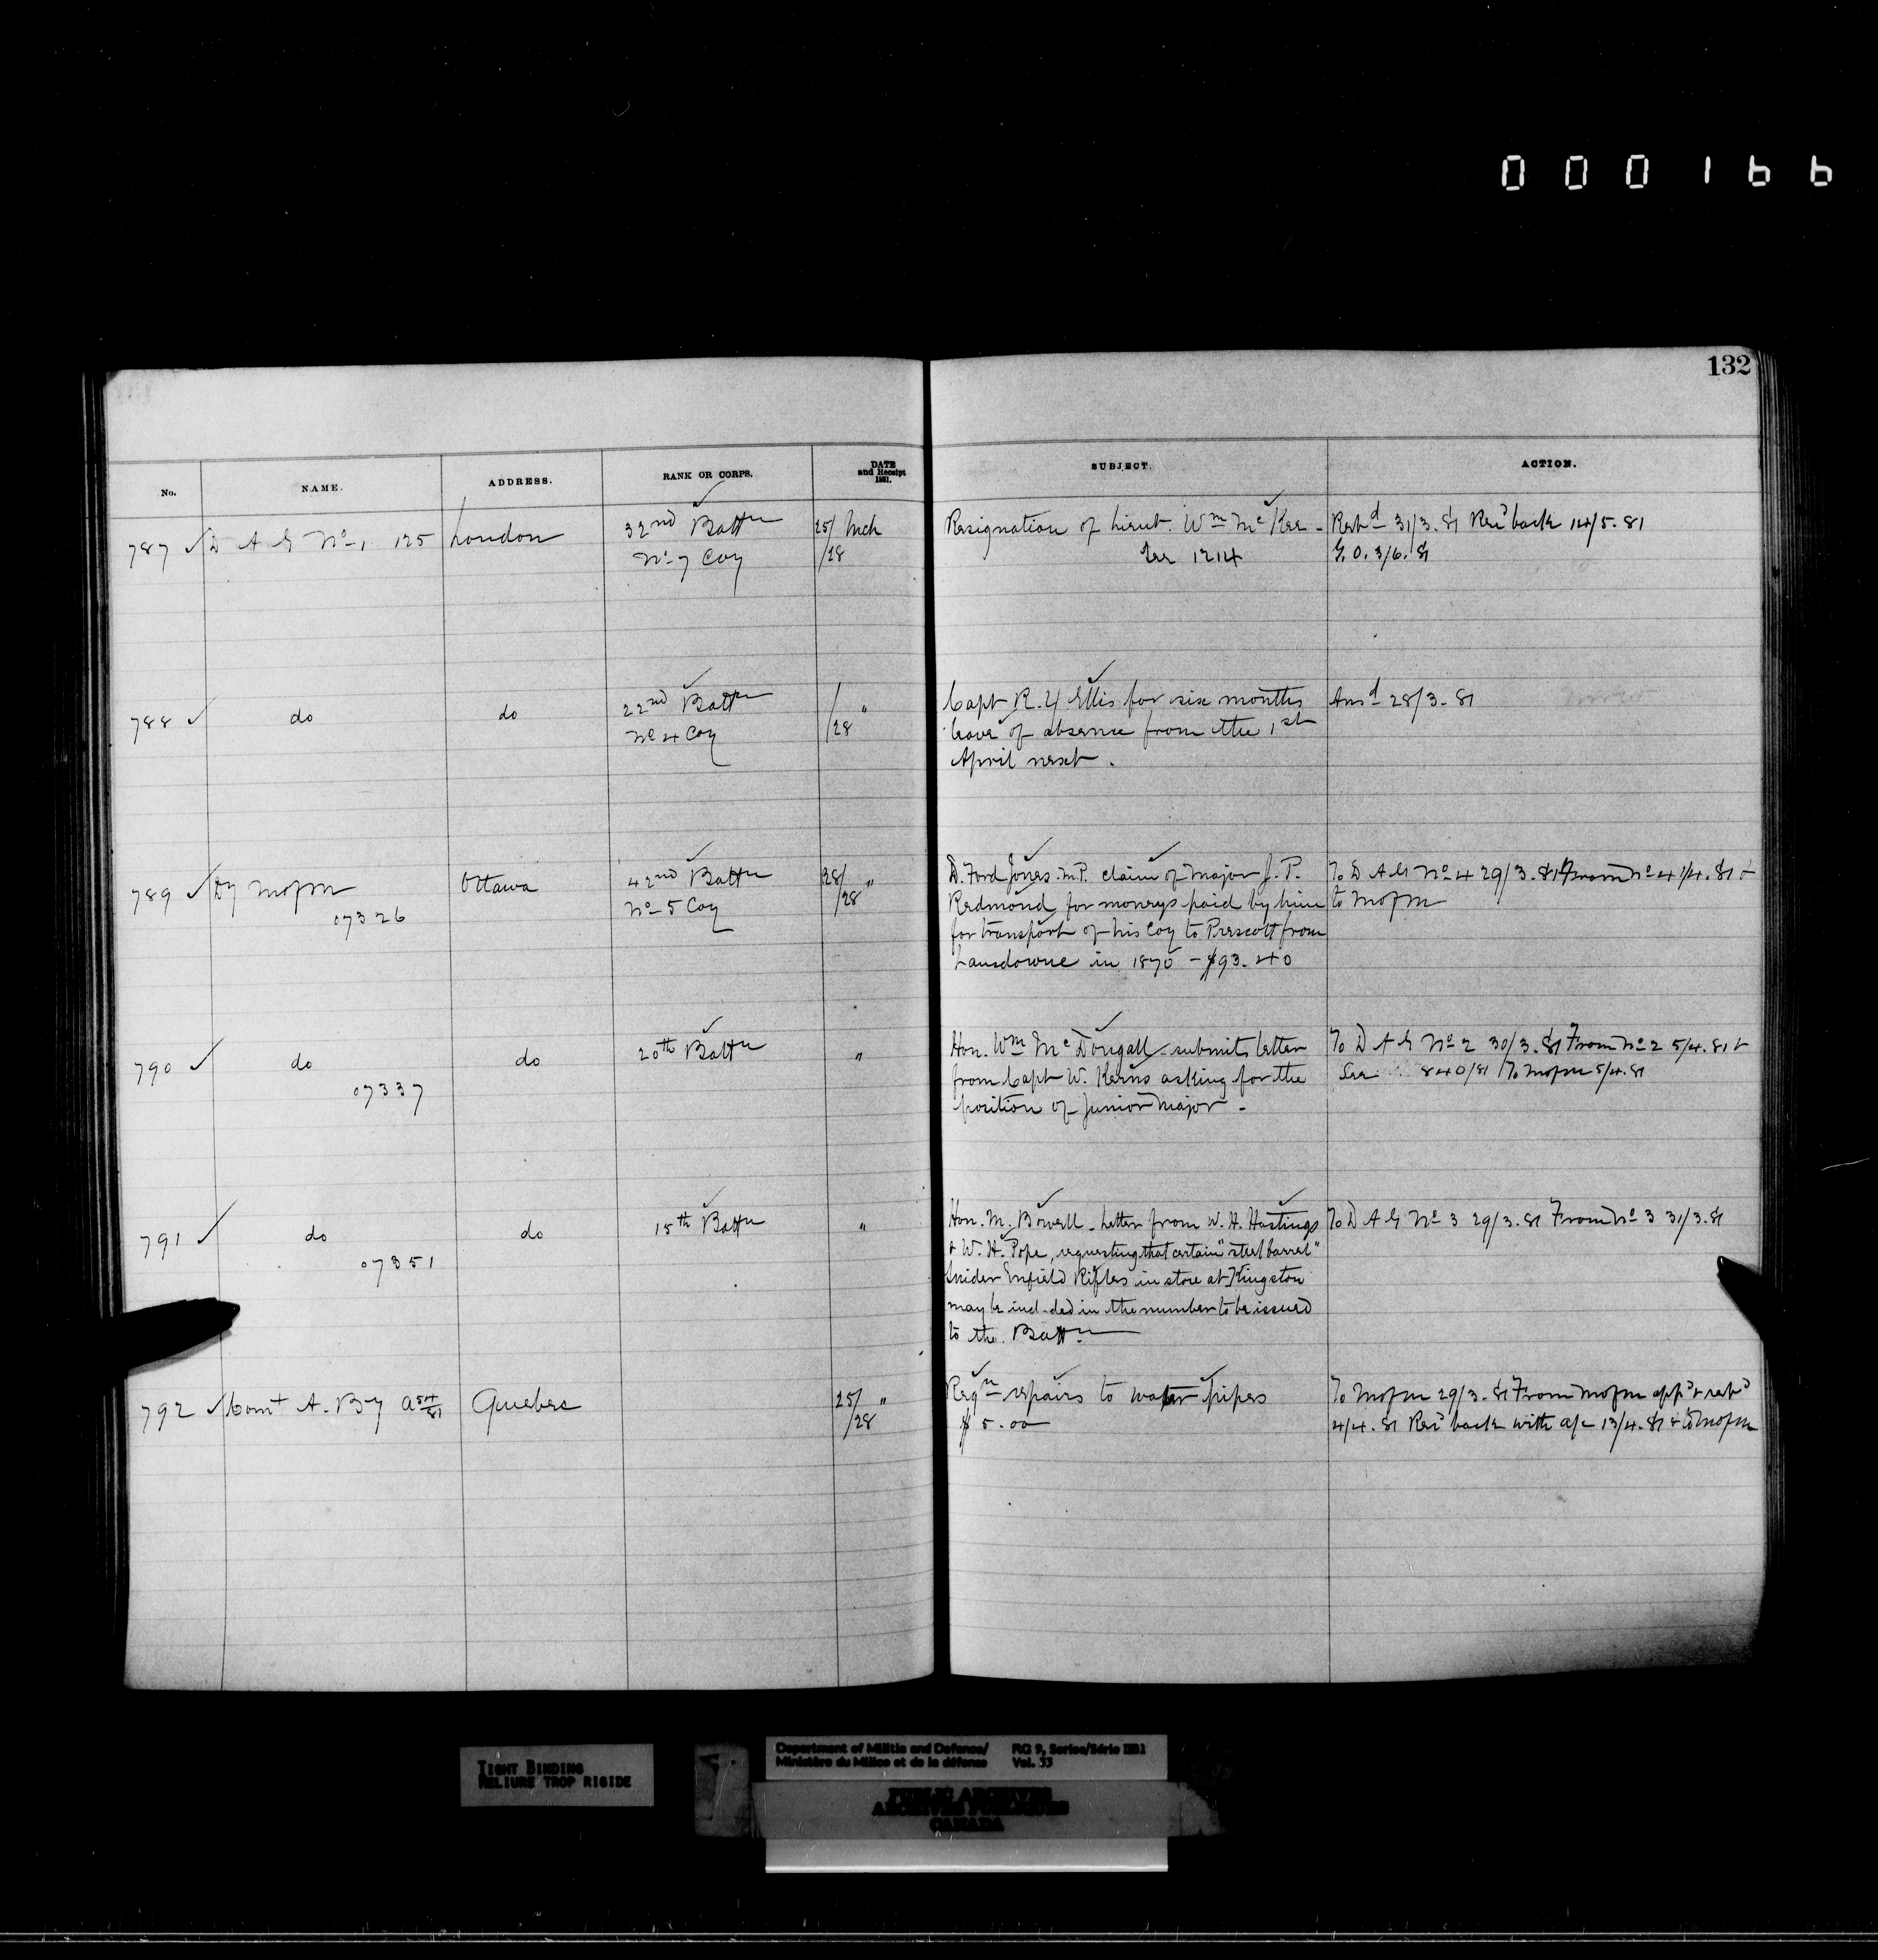 000166
132
No. NAME. ADDRESS. RANK OR CORPS. DATE and Receipt 1881. SUBJECT. ACTION.
787 ✓ D A G No 1 125 London 32nd Battn 25/ Mch Resignation of Lieut. Wm McKee - Retd 31/3.81 Recd back 14/5.81
No 7 Coy /28 See 1214 G.O. 3/6.81
788 ✓ do do 22nd Battn / " Capt R. Y Ellis for six months Ansd 28/3.81
No 4 Coy /28 leave of absence from the 1st
April next.
789 ✓ Dy MofM Ottawa 42nd Battn 28/ " D. Ford Jones. M.P. claim of Major J. P. To D A G No 4 29/3.81 From No 4 1/4.81 &
07326 No 5 Coy /28 Redmond for moneys paid by him to MofM
for transport of his Coy to Prescott from
Lansdowne in 1870 - $93.40
790 ✓ do do 20th Battn " Hon. Wm McDougall - submits letter To D A G No 2 30/3.81 From No 2 5/4.81 &
07337 from Capt W. Kerns asking for the See 840/81 To MofM 5/4.81
position of Junior Major -
791 ✓ do do 15th Battn " Hon. M. Bowell - Letter from W. H. Hastings To D A G No 3 29/3.81 From No 3 31/3.81
07351 & W. H. Pope, requesting that certain "steel barrel"
Snider Enfield Rifles in store at Kingston
may be included in the number to be issued
to the Battn
792 ✓ Comt A. By A 54/81 Quebec 25/ " Reqn repairs to water pipes To MofM 29/3.81 From MofM appd & retd
/28 $5.00 4/4.81 Recd back with a/c 13/4.81 & to MofM
TIGHT BINDING
RELIURE TROP RIGIDE
Department of Militia and Defence/ RG 9, Series/Série IIB1
Ministère du Milice et de la défense Vol. 33
PUBLIC ARCHIVES
ARCHIVES PUBLIQUES
CANADA